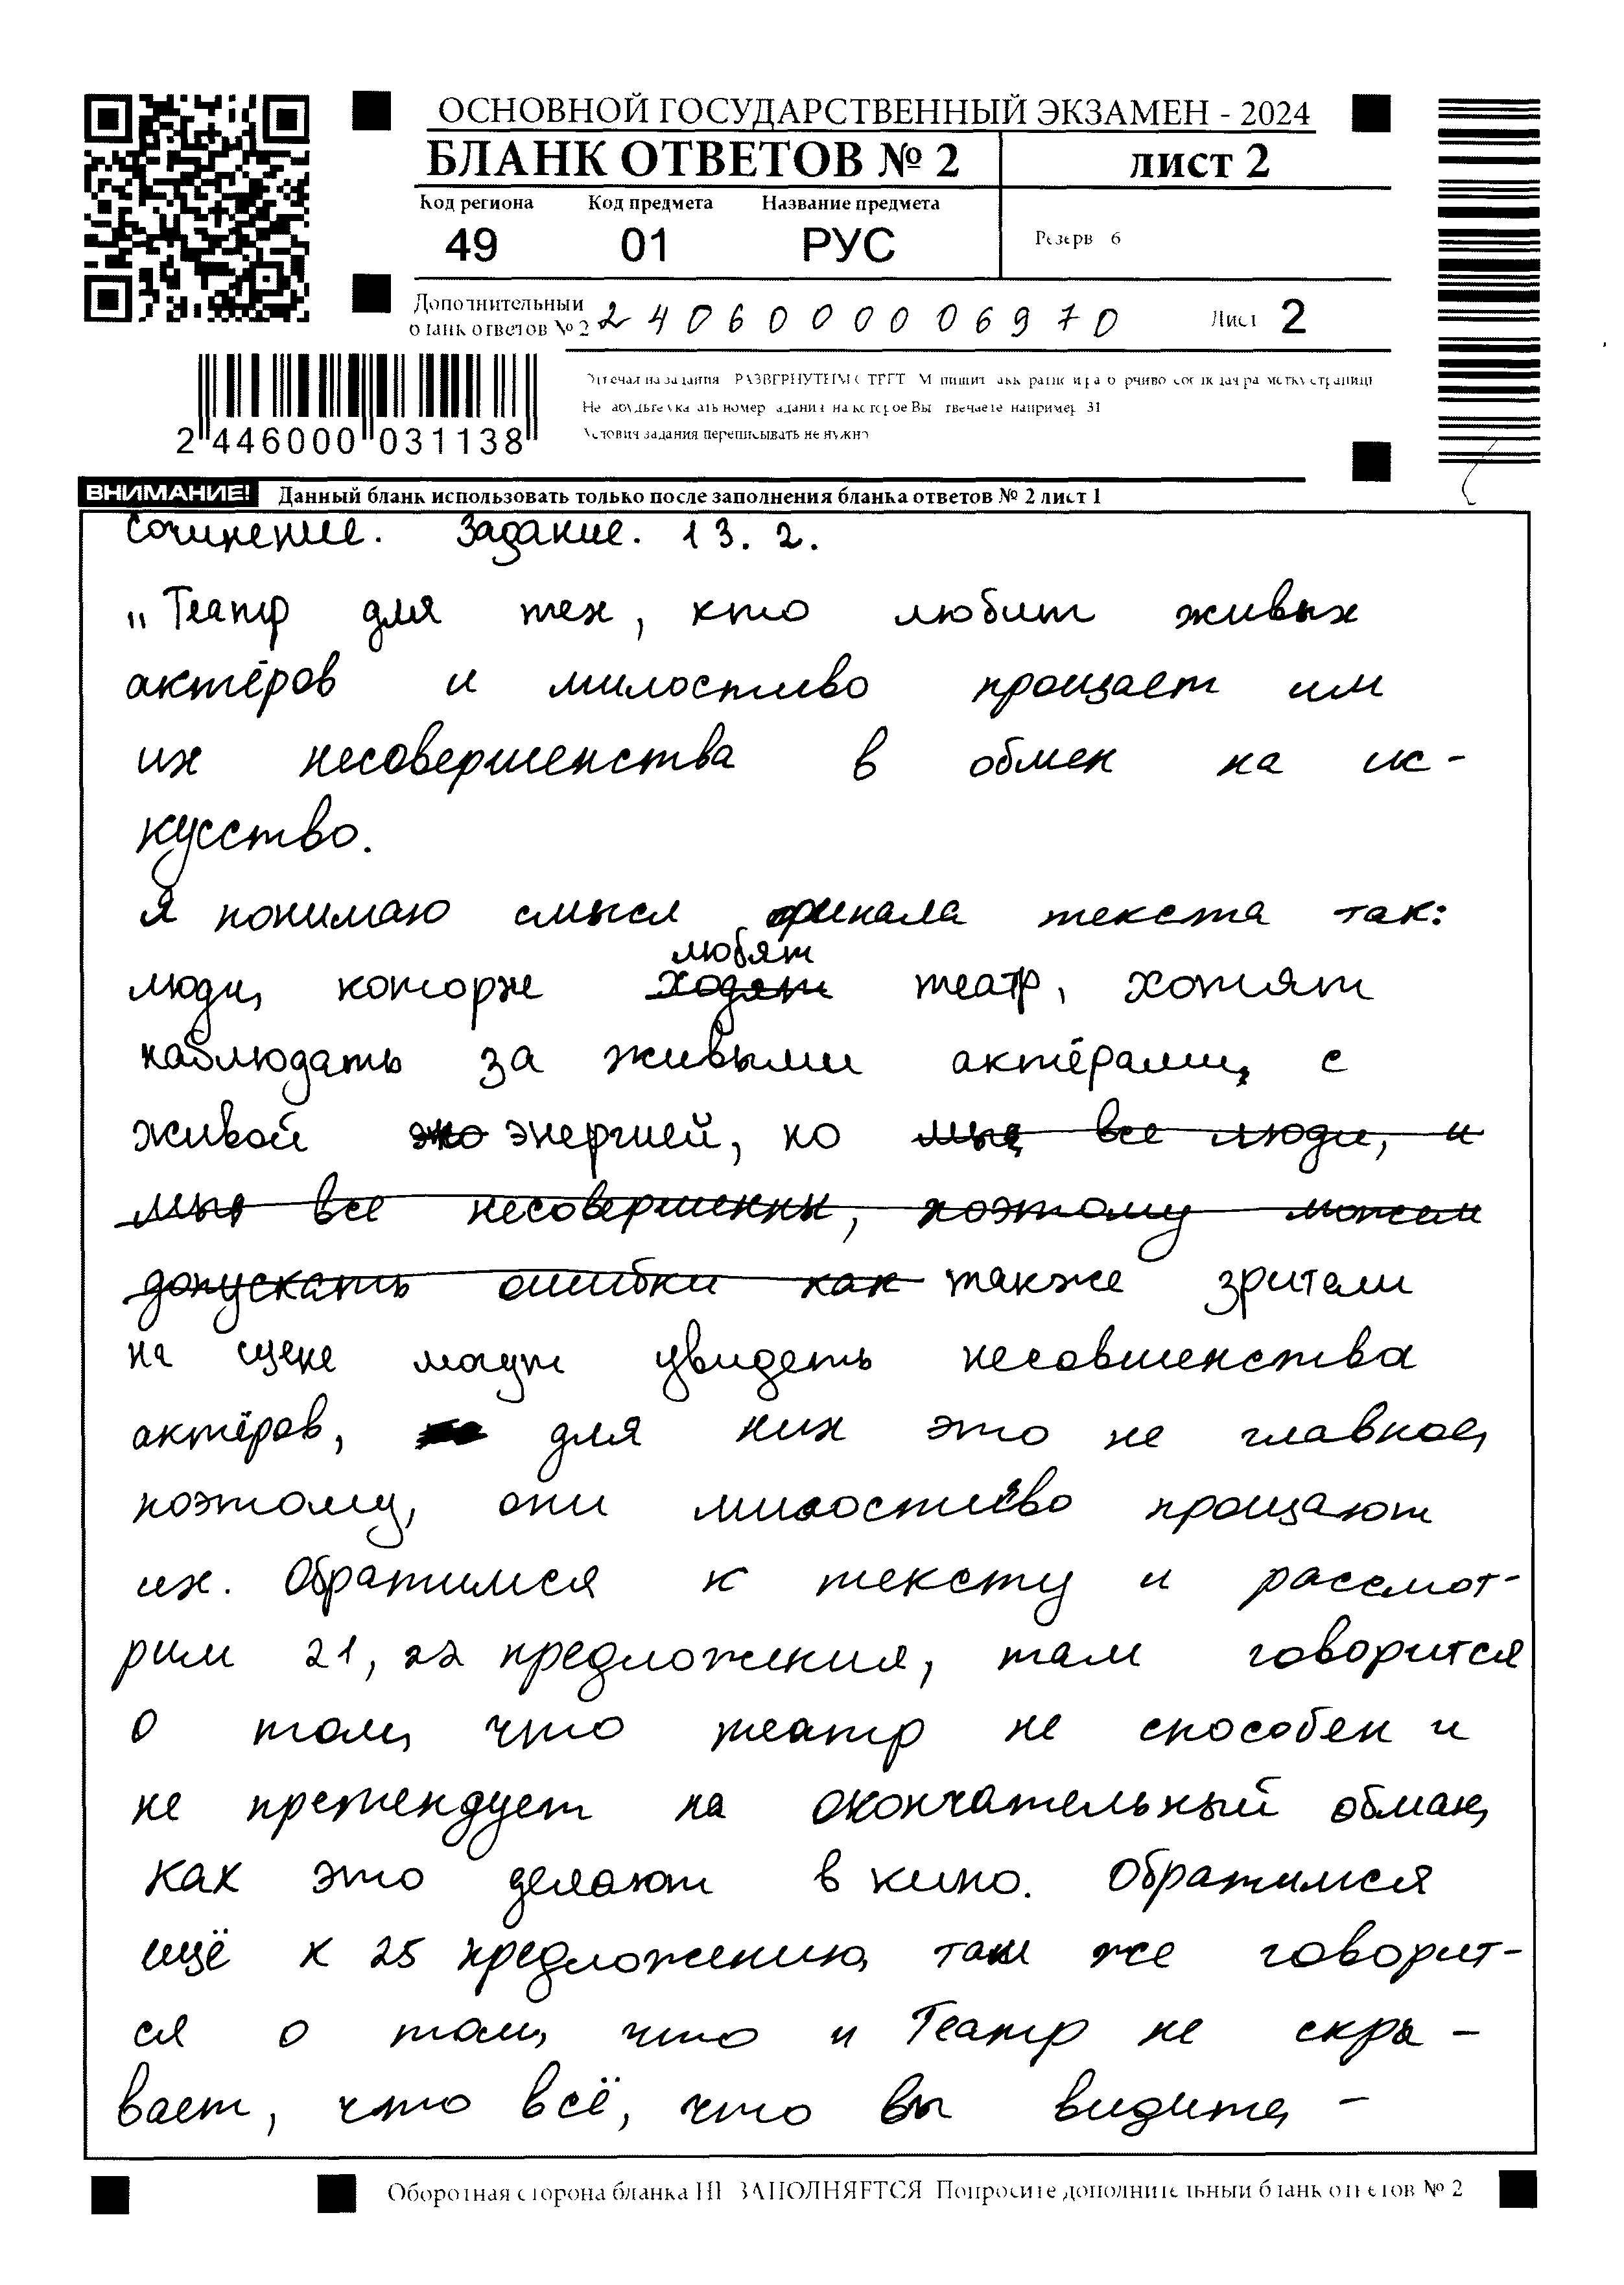 ОСНОВНОЙ ГОСУДАРСТВЕННЫЙ ЭКЗАМЕН - 2024
БЛАНК ОТВЕТОВ № 2 лист 2
Код региона Код предмета Название предмета
49 01 РУС Резерв 6
Дополнительный
бланк ответов № 2 2406000006970 Лист 2
2 446000 031138
Условия задания переписывать не нужно
ВНИМАНИЕ! Данный бланк использовать только после заполнения бланка ответов № 2 лист 1
Сочинение. Задание. 13. 2.
„Театр для тех, кто любит живых
актёров и милостиво прощает им
их несовершенства в обмен на ис-
кусство.
Я понимаю смысл финала текста так:
любят
люди, которые ходят театр, хотят
наблюдать за живыми актёрами, с
живой эно энергией, но мы, все люди, и
мы все несовершенны, поэтому можем
допускать ошибки как также зрители
на сцене могут увидеть несовшенства
актёров, для них это не главное,
поэтому, они милостиво прощают
их. Обратимся к тексту и рассмот-
рим 21, 22 предложения, там говорится
о том, что театр не способен и
не претендует на окончательный обман,
как это делают в кино. Обратимся
ещё к 25 предложению, там же говорит-
ся о том, что и Театр не скры-
вает, что всё, что вы видите, -
Оборотная сторона бланка НЕ ЗАПОЛНЯЕТСЯ Попросите дополнительный бланк ответов № 2